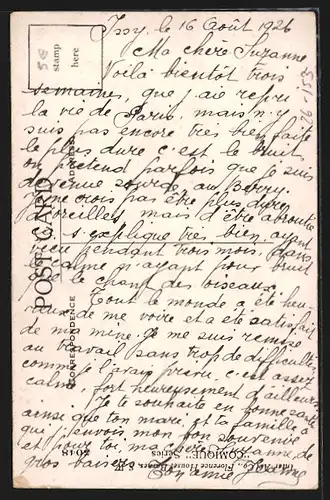 Issy, le 16 Août 1926
Ma chère Suzanne
Voilà bientôt trois
semaines, que j'aie repri
la vie de Paris, mais n'y
suis pas encore très bien faite
le plus dure c'est le bruit,
on prétend parfois que je suis
devenue sourde, au Berry.
Je ne crois pas être plus dure
d'oreilles, mais d'être abroutie
s'explique très bien, ayant
vécu pendant trois mois, dans
calme n'ayant pour bruit
le chant des oiseaux.
Tout le monde a été heu-
reux de me voire et a été satisfait
de ma mine. Je me suis remise
au travail sans trop de difficultés
comme je l'avais prévu. c'est assez
calme, fort heureusement d'ailleurs
Je te souhaite en bonne santé
ainse que ton mare, et ta famille à
qui j'envois mon bon souvenir
et pour toi, ma chère Suzanne, de
gros bais
Ton amie Jeanne
stamp
here
POST CARD
CORRESPONDENCE
ADDRESS
Inter-Art Co., Florence House, Barnes,
"COMIQUE" Series